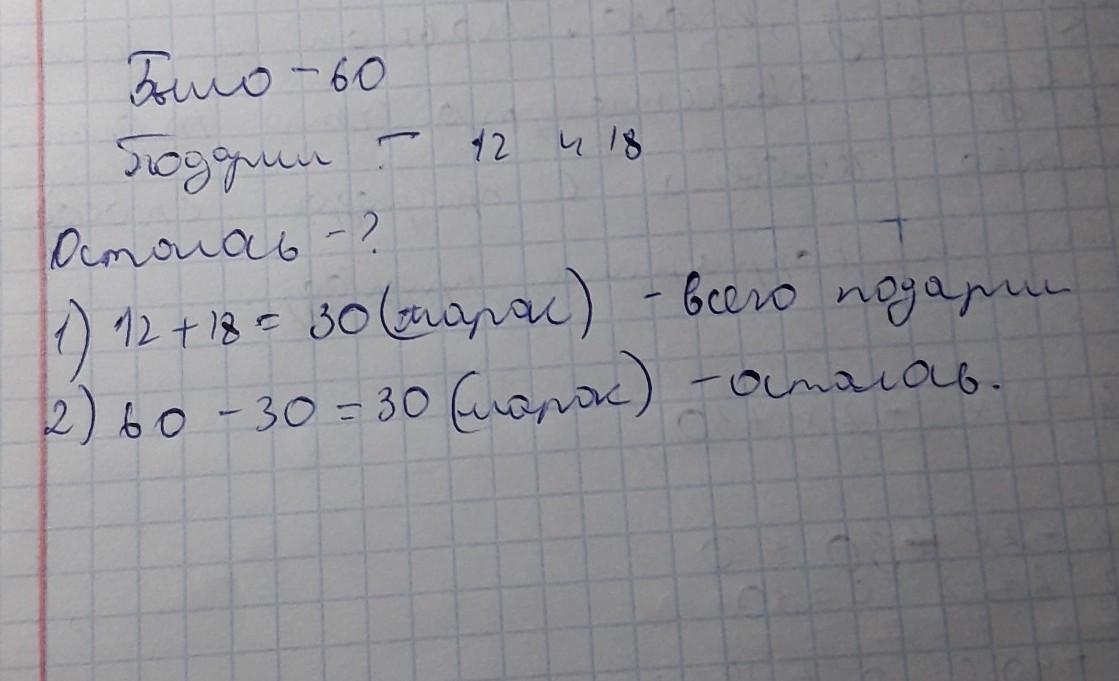 Было - 60
Подарил - 12 и 18
Осталось - ?
1) 12 + 18 = 30 (марок) - всего подарил
2) 60 - 30 = 30 (марок) - осталось.